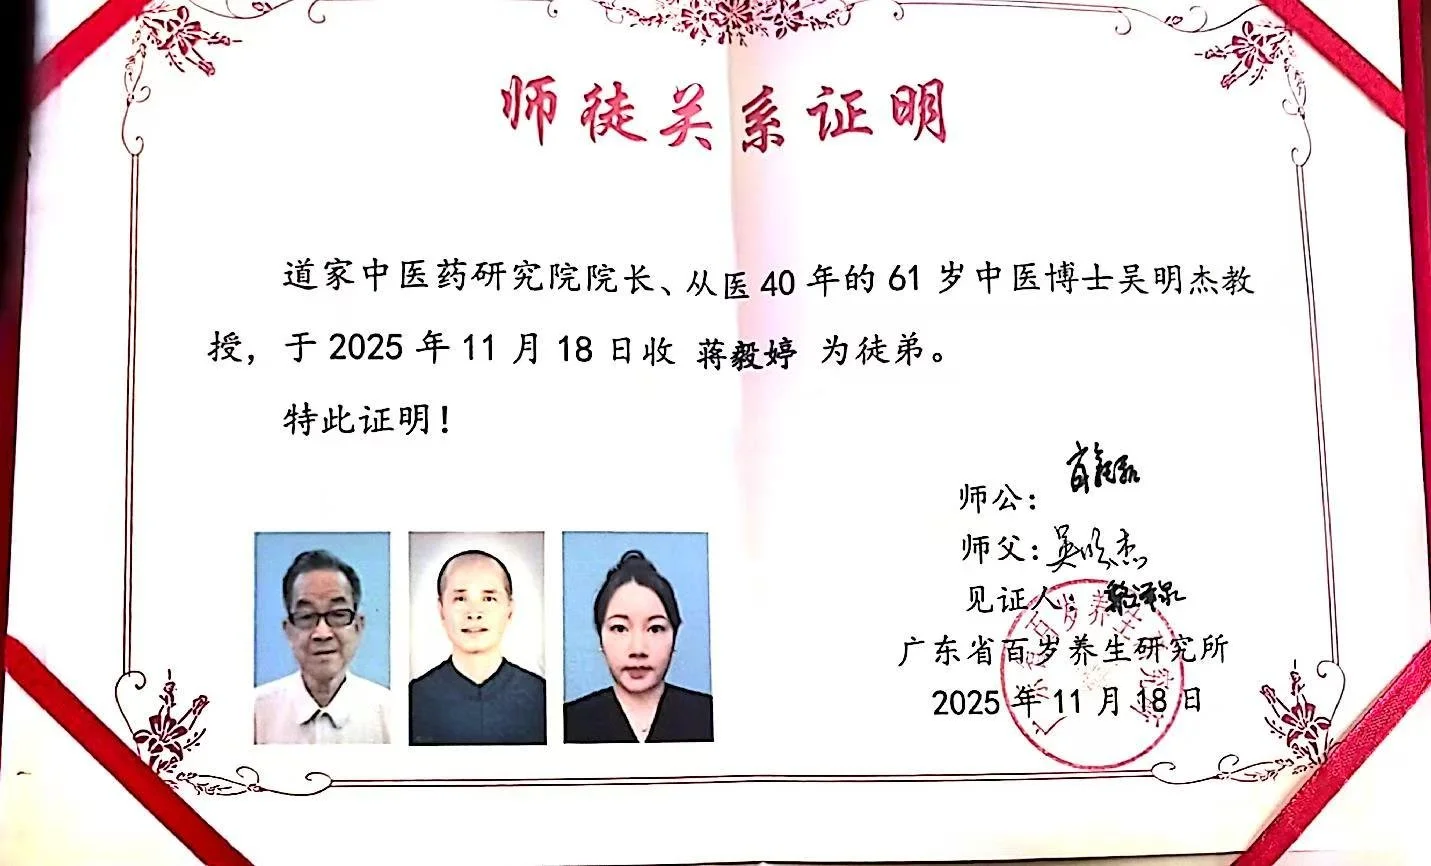 师徒关系证明
道家中医药研究院院长、从医40年的61岁中医博士吴明杰教
授，于2025年11月18日收 蒋毅婷 为徒弟。
特此证明！
师公：
师父：吴明杰
见证人：
广东省百岁养生研究所
2025年11月18日